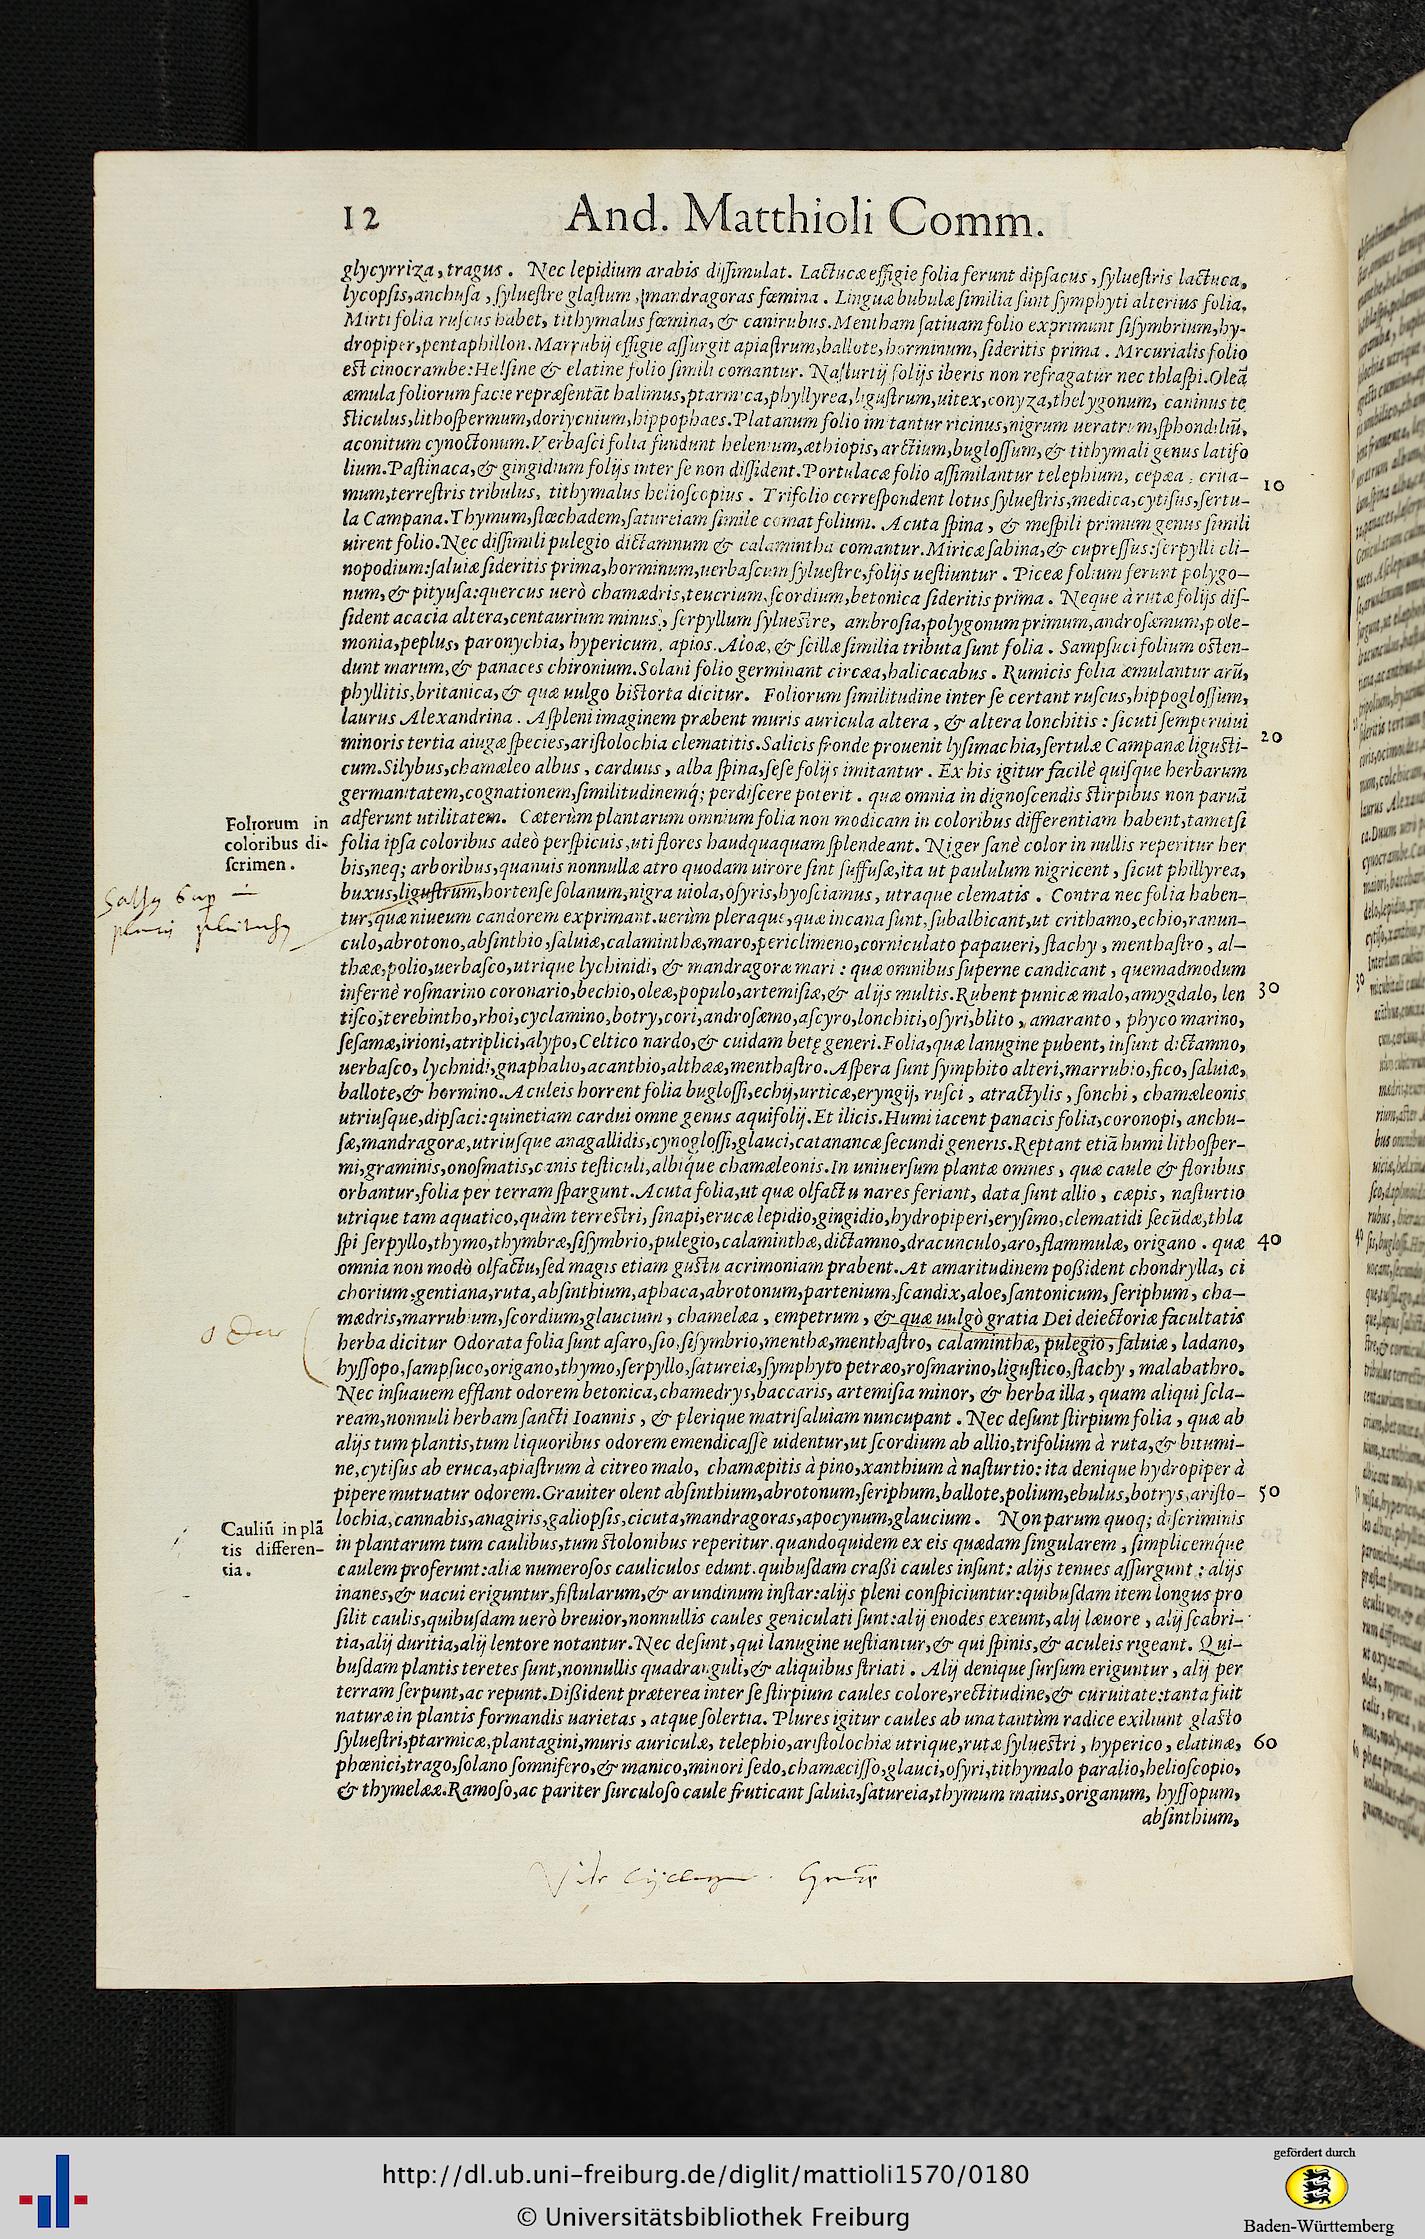 12
And. Matthioli Comm.
glycyrriza, tragus. Nec lepidium arabis dissimulat. Lactucæ effigie folia ferunt dipsacus, syluestris lactuca,
lycopsis, anchusa, syluestre glastum, mandragoras fœmina. Linguæ bubulæ similia sunt symphyti alterius folia.
Mirti folia ruscus habet, tithymalus fœmina, & canirubus. Mentham satiuam folio exprimunt sisymbrium, hy-
dropiper, pentaphillon. Marrubij effigie assurgit apiastrum, ballote, horminum, sideritis prima. Mrcurialis folio
est cinocrambe: Helsine & elatine folio simili comantur. Nasturtij folijs iberis non refragatur nec thlaspi. Oleā
æmula foliorum facie repræsentāt halimus, ptarmica, phyllyrea, ligustrum, uitex, conyza, thelygonum, caninus te
sticulus, lithospermum, doriycnium, hippophaes. Platanum folio imitantur ricinus, nigrum ueratrum, sphondiliū,
aconitum cynoctonum. Verbasci folia fundunt helenium, æthiopis, arctium, buglossum, & tithymali genus latifo
lium. Pastinaca, & gingidium folijs inter se non dissident. Portulacæ folio assimilantur telephium, cepæa, crita-
10
mum, terrestris tribulus, tithymalus helioscopius. Trifolio correspondent lotus syluestris, medica, cytisus, sertu-
la Campana. Thymum, stœchadem, satureiam simile comat folium. Acuta spina, & mespili primum genus simili
uirent folio. Nec dissimili pulegio dictamnum & calamintha comantur. Miricæ sabina, & cupressus: serpylli cli-
nopodium: saluiæ sideritis prima, horminum, uerbascum syluestre, folijs uestiuntur. Piceæ folium ferunt polygo-
num, & pityusa: quercus uerò chamædris, teucrium, scordium, betonica sideritis prima. Neque à rutæ folijs dis-
sident acacia altera, centaurium minus, serpyllum syluestre, ambrosia, polygonum primum, androsæmum, pole-
monia, peplus, paronychia, hypericum, apios. Aloæ, & scillæ similia tributa sunt folia. Sampsuci folium osten-
dunt marum, & panaces chironium. Solani folio germinant circæa, halicacabus. Rumicis folia æmulantur arū,
phyllitis, britanica, & quæ uulgo bistorta dicitur. Foliorum similitudine inter se certant ruscus, hippoglossum,
laurus Alexandrina. Aspleni imaginem præbent muris auricula altera, & altera lonchitis: sicuti semperuiui
minoris tertia aiugæ species, aristolochia clematitis. Salicis fronde prouenit lysimachia, sertulæ Campanæ ligusti-
20
cum. Silybus, chamæleo albus, carduus, alba spina, sese folijs imitantur. Ex his igitur facilè quisque herbarum
germanitatem, cognationem, similitudinemq́; perdiscere poterit. quæ omnia in dignoscendis stirpibus non paruā
adferunt utilitatem. Cæterùm plantarum omnium folia non modicam in coloribus differentiam habent, tametsi
Foliorum in
coloribus di-
scrimen.
folia ipsa coloribus adeò perspicuis, uti flores haudquaquam splendeant. Niger sanè color in nullis reperitur her
bis, neq; arboribus, quanuis nonnullæ atro quodam uirore sint suffusæ, ita ut paululum nigricent, sicut phillyrea,
buxus, ligustrum, hortense solanum, nigra uiola, osyris, hyosciamus, utraque clematis. Contra nec folia haben-
tur, quæ niueum candorem exprimant. uerùm pleraque, quæ incana sunt, subalbicant, ut crithamo, echio, ranun-
culo, abrotono, absinthio, saluiæ, calaminthæ, maro, periclimeno, corniculato papaueri, stachy, menthastro, al-
thææ, polio, uerbasco, utrique lychinidi, & mandragoræ mari: quæ omnibus superne candicant, quemadmodum
infernè rosmarino coronario, bechio, oleæ, populo, artemisiæ, & alijs multis. Rubent punicæ malo, amygdalo, len
30
tisco, terebintho, rhoi, cyclamino, botry, cori, androsæmo, ascyro, lonchiti, osyri, blito, amaranto, phyco marino,
sesamæ, irioni, atriplici, alypo, Celtico nardo, & cuidam betę generi. Folia, quæ lanugine pubent, insunt dictamno,
uerbasco, lychnidi, gnaphalio, acanthio, althææ, menthastro. Aspera sunt symphito alteri, marrubio, fico, saluiæ,
ballote, & hormino. Aculeis horrent folia buglossi, echij, urticæ, eryngij, rusci, atractylis, sonchi, chamæleonis
utriusque, dipsaci: quinetiam cardui omne genus aquifolij. Et ilicis. Humi iacent panacis folia, coronopi, anchu-
sæ, mandragoræ, utriusque anagallidis, cynoglossi, glauci, catanancæ secundi generis. Reptant etiā humi lithosper-
mi, graminis, onosmatis, canis testiculi, albiq́ue chamæleonis. In uniuersum plantæ omnes, quæ caule & floribus
orbantur, folia per terram spargunt. Acuta folia, ut quæ olfactu nares feriant, data sunt allio, cæpis, nasturtio
utrique tam aquatico, quàm terrestri, sinapi, erucæ lepidio, gingidio, hydropiperi, erysimo, clematidi secūdæ, thla
spi serpyllo, thymo, thymbræ, sisymbrio, pulegio, calaminthæ, dictamno, dracunculo, aro, flammulæ, origano. quæ
40
omnia non modò olfactu, sed magis etiam gustu acrimoniam prabent. At amaritudinem possident chondrylla, ci
chorium, gentiana, ruta, absinthium, aphaca, abrotonum, partenium, scandix, aloe, santonicum, seriphum, cha-
mædris, marrubium, scordium, glaucium, chamelæa, empetrum, & quæ uulgò gratia Dei deiectoriæ facultatis
herba dicitur Odorata folia sunt asaro, sio, sisymbrio, menthæ, menthastro, calaminthæ, pulegio, saluiæ, ladano,
hyssopo, sampsuco, origano, thymo, serpyllo, satureiæ, symphyto petræo, rosmarino, ligustico, stachy, malabathro.
Nec insuauem efflant odorem betonica, chamedrys, baccaris, artemisia minor, & herba illa, quam aliqui scla-
ream, nonnuli herbam sancti Ioannis, & plerique matrisaluiam nuncupant. Nec desunt stirpium folia, quæ ab
alijs tum plantis, tum liquoribus odorem emendicasse uidentur, ut scordium ab allio, trifolium à ruta, & bitumi-
ne, cytisus ab eruca, apiastrum à citreo malo, chamæpitis à pino, xanthium à nasturtio: ita denique hydropiper à
pipere mutuatur odorem. Grauiter olent absinthium, abrotonum, seriphum, ballote, polium, ebulus, botrys, aristo-
50
lochia, cannabis, anagiris, galiopsis, cicuta, mandragoras, apocynum, glaucium. Non parum quoq; discriminis
Cauliū in plā
tis differen-
tia.
in plantarum tum caulibus, tum stolonibus reperitur. quandoquidem ex eis quædam singularem, simplicemq́ue
caulem proferunt: aliæ numerosos cauliculos edunt. quibusdam crassi caules insunt: alijs tenues assurgunt: alijs
inanes, & uacui eriguntur, fistularum, & arundinum instar: alijs pleni conspiciuntur: quibusdam item longus pro
silit caulis, quibusdam uerò breuior, nonnullis caules geniculati sunt: alij enodes exeunt, alij læuore, alij scabri-
tia, alij duritia, alij lentore notantur. Nec desunt, qui lanugine uestiantur, & qui spinis, & aculeis rigeant. Qui-
busdam plantis teretes sunt, nonnullis quadranguli, & aliquibus striati. Alij denique sursum eriguntur, alij per
terram serpunt, ac repunt. Dissident præterea inter se stirpium caules colore, rectitudine, & curuitate: tanta fuit
naturæ in plantis formandis uarietas, atque solertia. Plures igitur caules ab una tantùm radice exiliunt glasto
syluestri, ptarmicæ, plantagini, muris auriculæ, telephio, aristolochiæ utrique, rutæ syluestri, hyperico, elatinæ,
60
phœnici, trago, solano somnifero, & manico, minori sedo, chamæcisso, glauci, osyri, tithymalo paralio, helioscopio,
& thymelææ. Ramoso, ac pariter surculoso caule fruticant saluia, satureia, thymum maius, origanum, hyssopum,
absinthium,
http://dl.ub.uni-freiburg.de/diglit/mattioli1570/0180
© Universitätsbibliothek Freiburg
gefördert durch
Baden-Württemberg